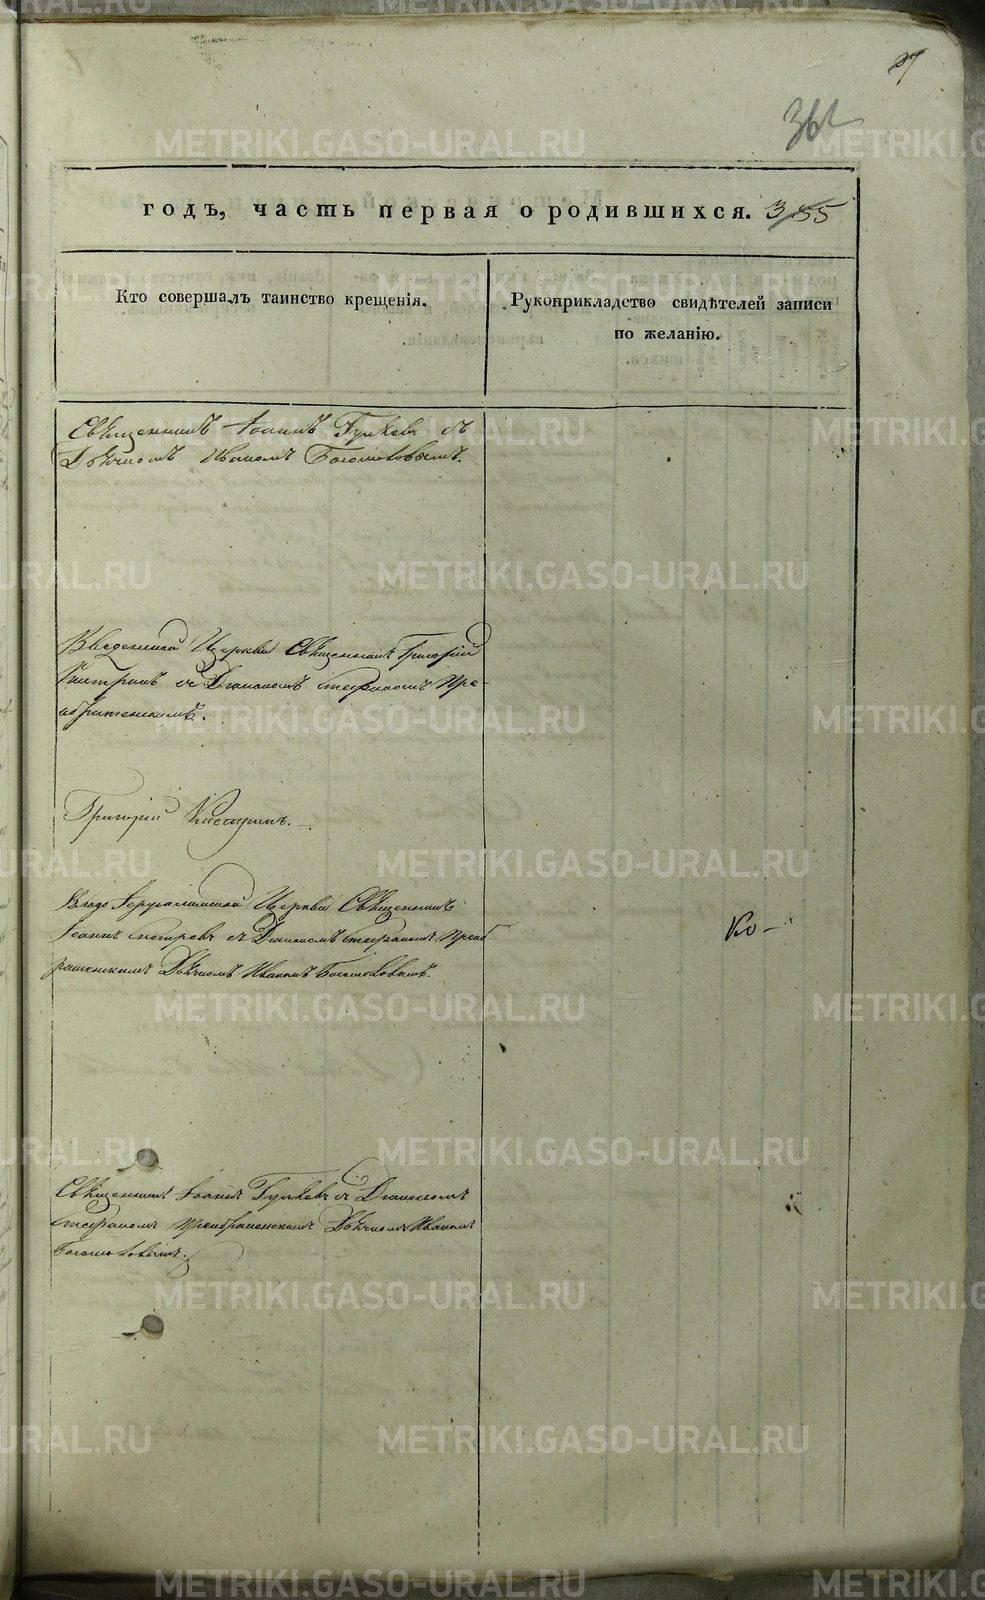 361
годъ, часть первая о родившихся. 355
Кто совершалъ таинство крещенія.
Рукоприкладство свидѣтелей записи
по желанію.
Священникъ Іоаннъ съ
Дьячкомъ Иваномъ Богословскимъ.
Введенской Церкви Священникъ Григорій
съ Діакономъ Стефаномъ Пре-
ображенскимъ.
Григорій
Входо Іерусалимской Церкви Священникъ
Іоаннъ съ Діакономъ Стефаномъ Преоб
раженскимъ Дьячкомъ Иваномъ Богословскимъ.
Ко-
Священникъ Іоаннъ съ Діакономъ
Стефаномъ Преображенскимъ Дьячкомъ Иваномъ
Богословскимъ.
METRIKI.GASO-URAL.RU